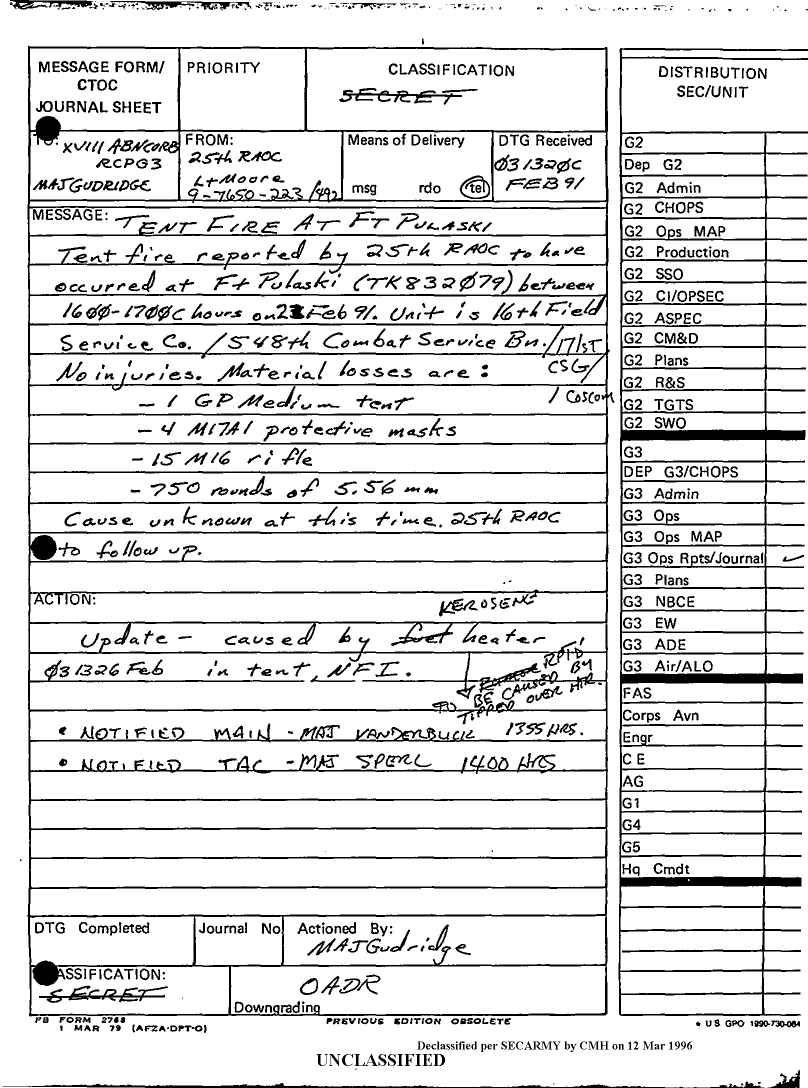 MESSAGE FORM/
CTOC
JOURNAL SHEET
PRIORITY
CLASSIFICATION
SECRET
TO: XVIII ABNCORB
RCPG3
MAJGUDRIDGE
FROM:
25th RAOC
Lt Moore
9-7650-223/492
Means of Delivery
msg rdo tel
DTG Received
Ø3132ØC
FEB 91
MESSAGE: TENT FIRE AT FT PULASKI
Tent fire reported by 25th RAOC to have
occurred at Ft Pulaski (TK832Ø79) between
16ØØ-17ØØC hours on Feb 91. Unit is 16th Field
Service Co. /548th Combat Service Bn./171st
CSG/
1 COSCOM
No injuries. Material losses are:
- 1 GP Medium tent
- 4 M17A1 protective masks
- 15 M16 rifle
- 750 rounds of 5.56 mm
Cause unknown at this time. 25th RAOC
to follow up.
ACTION:
KEROSENE
Update - caused by heater
Ø31326 Feb in tent, NFI.
RPTD
TO BE CAUSED BY
TIPPED OVER HTR.
• NOTIFIED MAIN - MAJ VANDERBLICK 1355 HRS.
• NOTIFIED TAC - MAJ SPERL 1400 HRS
DTG Completed
Journal No
Actioned By:
MAJGudridge
CLASSIFICATION:
SECRET
OADR
Downgrading
FB FORM 2768
1 MAR 79 (AFZA-DPT-O)
PREVIOUS EDITION OBSOLETE
DISTRIBUTION
SEC/UNIT
G2
Dep G2
G2 Admin
G2 CHOPS
G2 Ops MAP
G2 Production
G2 SSO
G2 CI/OPSEC
G2 ASPEC
G2 CM&D
G2 Plans
G2 R&S
G2 TGTS
G2 SWO
G3
DEP G3/CHOPS
G3 Admin
G3 Ops
G3 Ops MAP
G3 Ops Rpts/Journal ✓
G3 Plans
G3 NBCE
G3 EW
G3 ADE
G3 Air/ALO
FAS
Corps Avn
Engr
CE
AG
G1
G4
G5
Hq Cmdt
* US GPO 1990-730-084
Declassified per SECARMY by CMH on 12 Mar 1996
UNCLASSIFIED